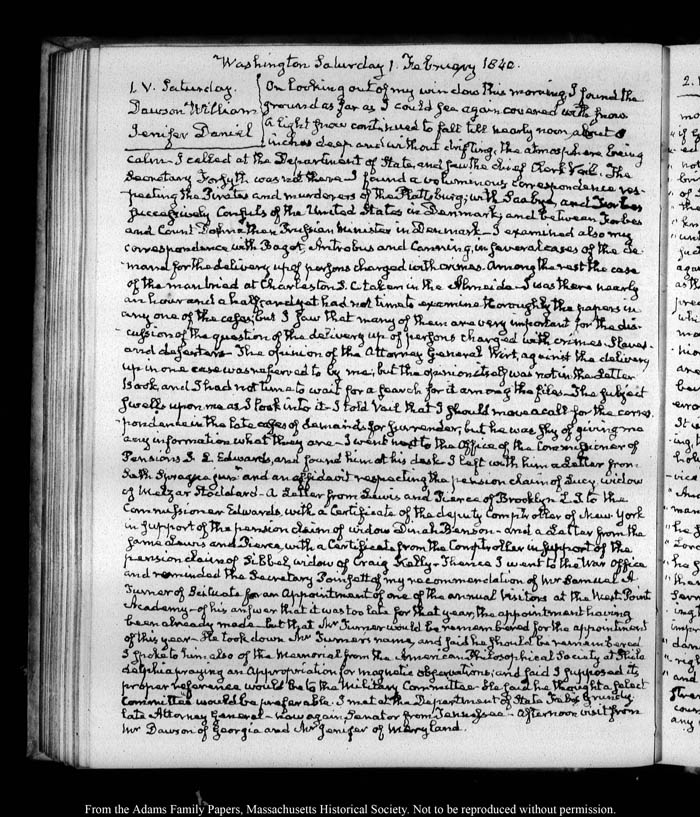 Washington Saturday 1. February 1840.
I. V. Saturday.
Dawson William
Jenifer Daniel
On looking out of my window this morning, I found the
ground as far as I could see again covered with snow
A light snow continued to fall till nearly noon, about 8
inches deep and without drifting, the atmosphere being
calm. I called at the Department of State, and saw the chief Clerk Vail. The
Secretary Forsyth was not there. I found a voluminous correspondence res-
pecting the Pirates and murderers of the Plattsburg; with Saabye, and Forbes
successively Consuls of the United States in Denmark, and between Forbes
and Count Dohna then Prussian Minister in Denmark. I examined also my
correspondence with Bagot, Antrobus and Canning, in several cases of the de-
mand for the delivery up of persons charged with crimes. Among the rest the case
of the man tried at Charleston S. C. taken in the Almeida. I was there nearly
an hour and a half, and yet had not time to examine thoroughly the papers in
any one of the cases, but I saw that many of them are very important for the dis-
cussion of the question of the delivery up of persons charged with crimes. Slaves.
and deserters. The opinion of the Attorney General Wirt, against the delivery
up in one case was referred to by me, but the opinion itself was not in the Letter
Book, and I had not time to wait for a search for it among the files. The subject
swells upon me as I look into it. I told Vail that I should move a call for the corres-
pondence in the late cases of demands for surrender, but he was shy of giving me
any information what they are. I went next to the Office of the Commissioner of
Pensions J. L. Edwards, and found him at his desk. I left with him a Letter from
Seth Sprague junr and an affidavit respecting the pension claim of Lucy widow
of Melzar Stoddard. A Letter from Lewis and Pierce of Brooklyn L. I. to the
Commissioner Edwards, with a Certificate of the deputy Comptroller of New York
in support of the pension claim of widow Dinah Benson. and a Letter from the
same Lewis and Pierce, with a Certificate from the Comptroller in support of the
pension claim of Sibbel, widow of Craig Kelly. Thence I went to the War Office
and reminded the Secretary Poinsett of my recommendation of Mr Samuel A
Turner of Scituate for an Appointment of one of the annual Visitors at the West Point
Academy. of his answer that it was too late for that year, the appointment having
been already made. but that Mr Turner would be remembered for the appointment
of this year. He took down Mr Turner's name, and said he should be remembered
I spoke to him also of the Memorial from the American Philosophical Society at Phila
delphia praying an Appropriation for magnetic observations; and said I supposed its
proper reference would be to the Military Committee. He said he thought a select
Committee would be preferable. I met at the Department of State Felix Grundy,
late Attorney General. now again, Senator from Tennessee. Afternoon visit from
Mr Dawson of Georgia and Mr Jenifer of Maryland.
From the Adams Family Papers, Massachusetts Historical Society. Not to be reproduced without permission.